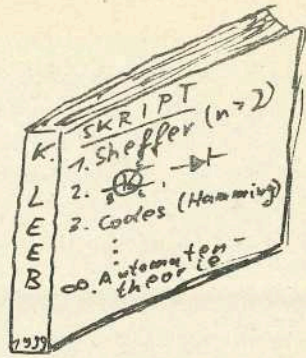 K.
LEEB
1999
SKRIPT
1. Sheffer (n>2)
2.
3. Codes (Hamming)
⋮
∞. Automaten-
theorie